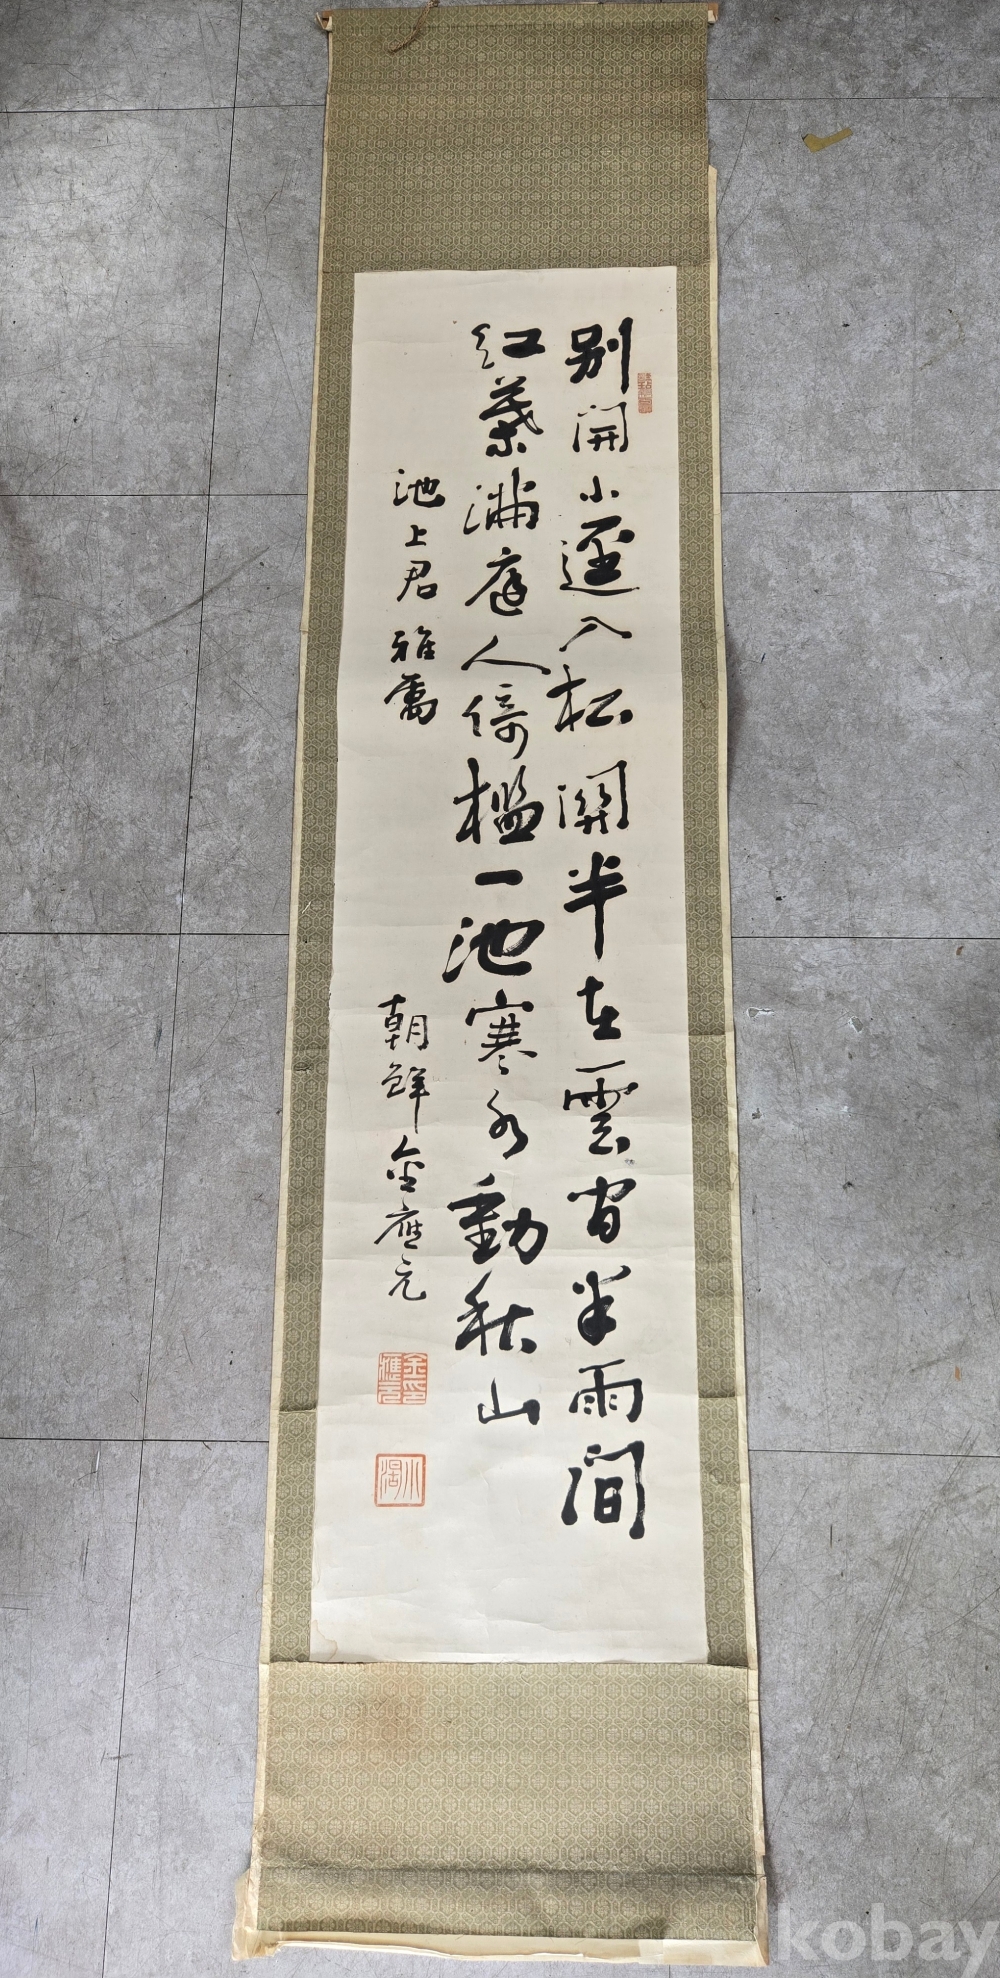 別開小逕入松關半在雲間半雨間
紅葉滿庭人倚檻一池寒水動秋山
池上君 雅屬
朝鮮金應元
金應元印
小湖
kobay